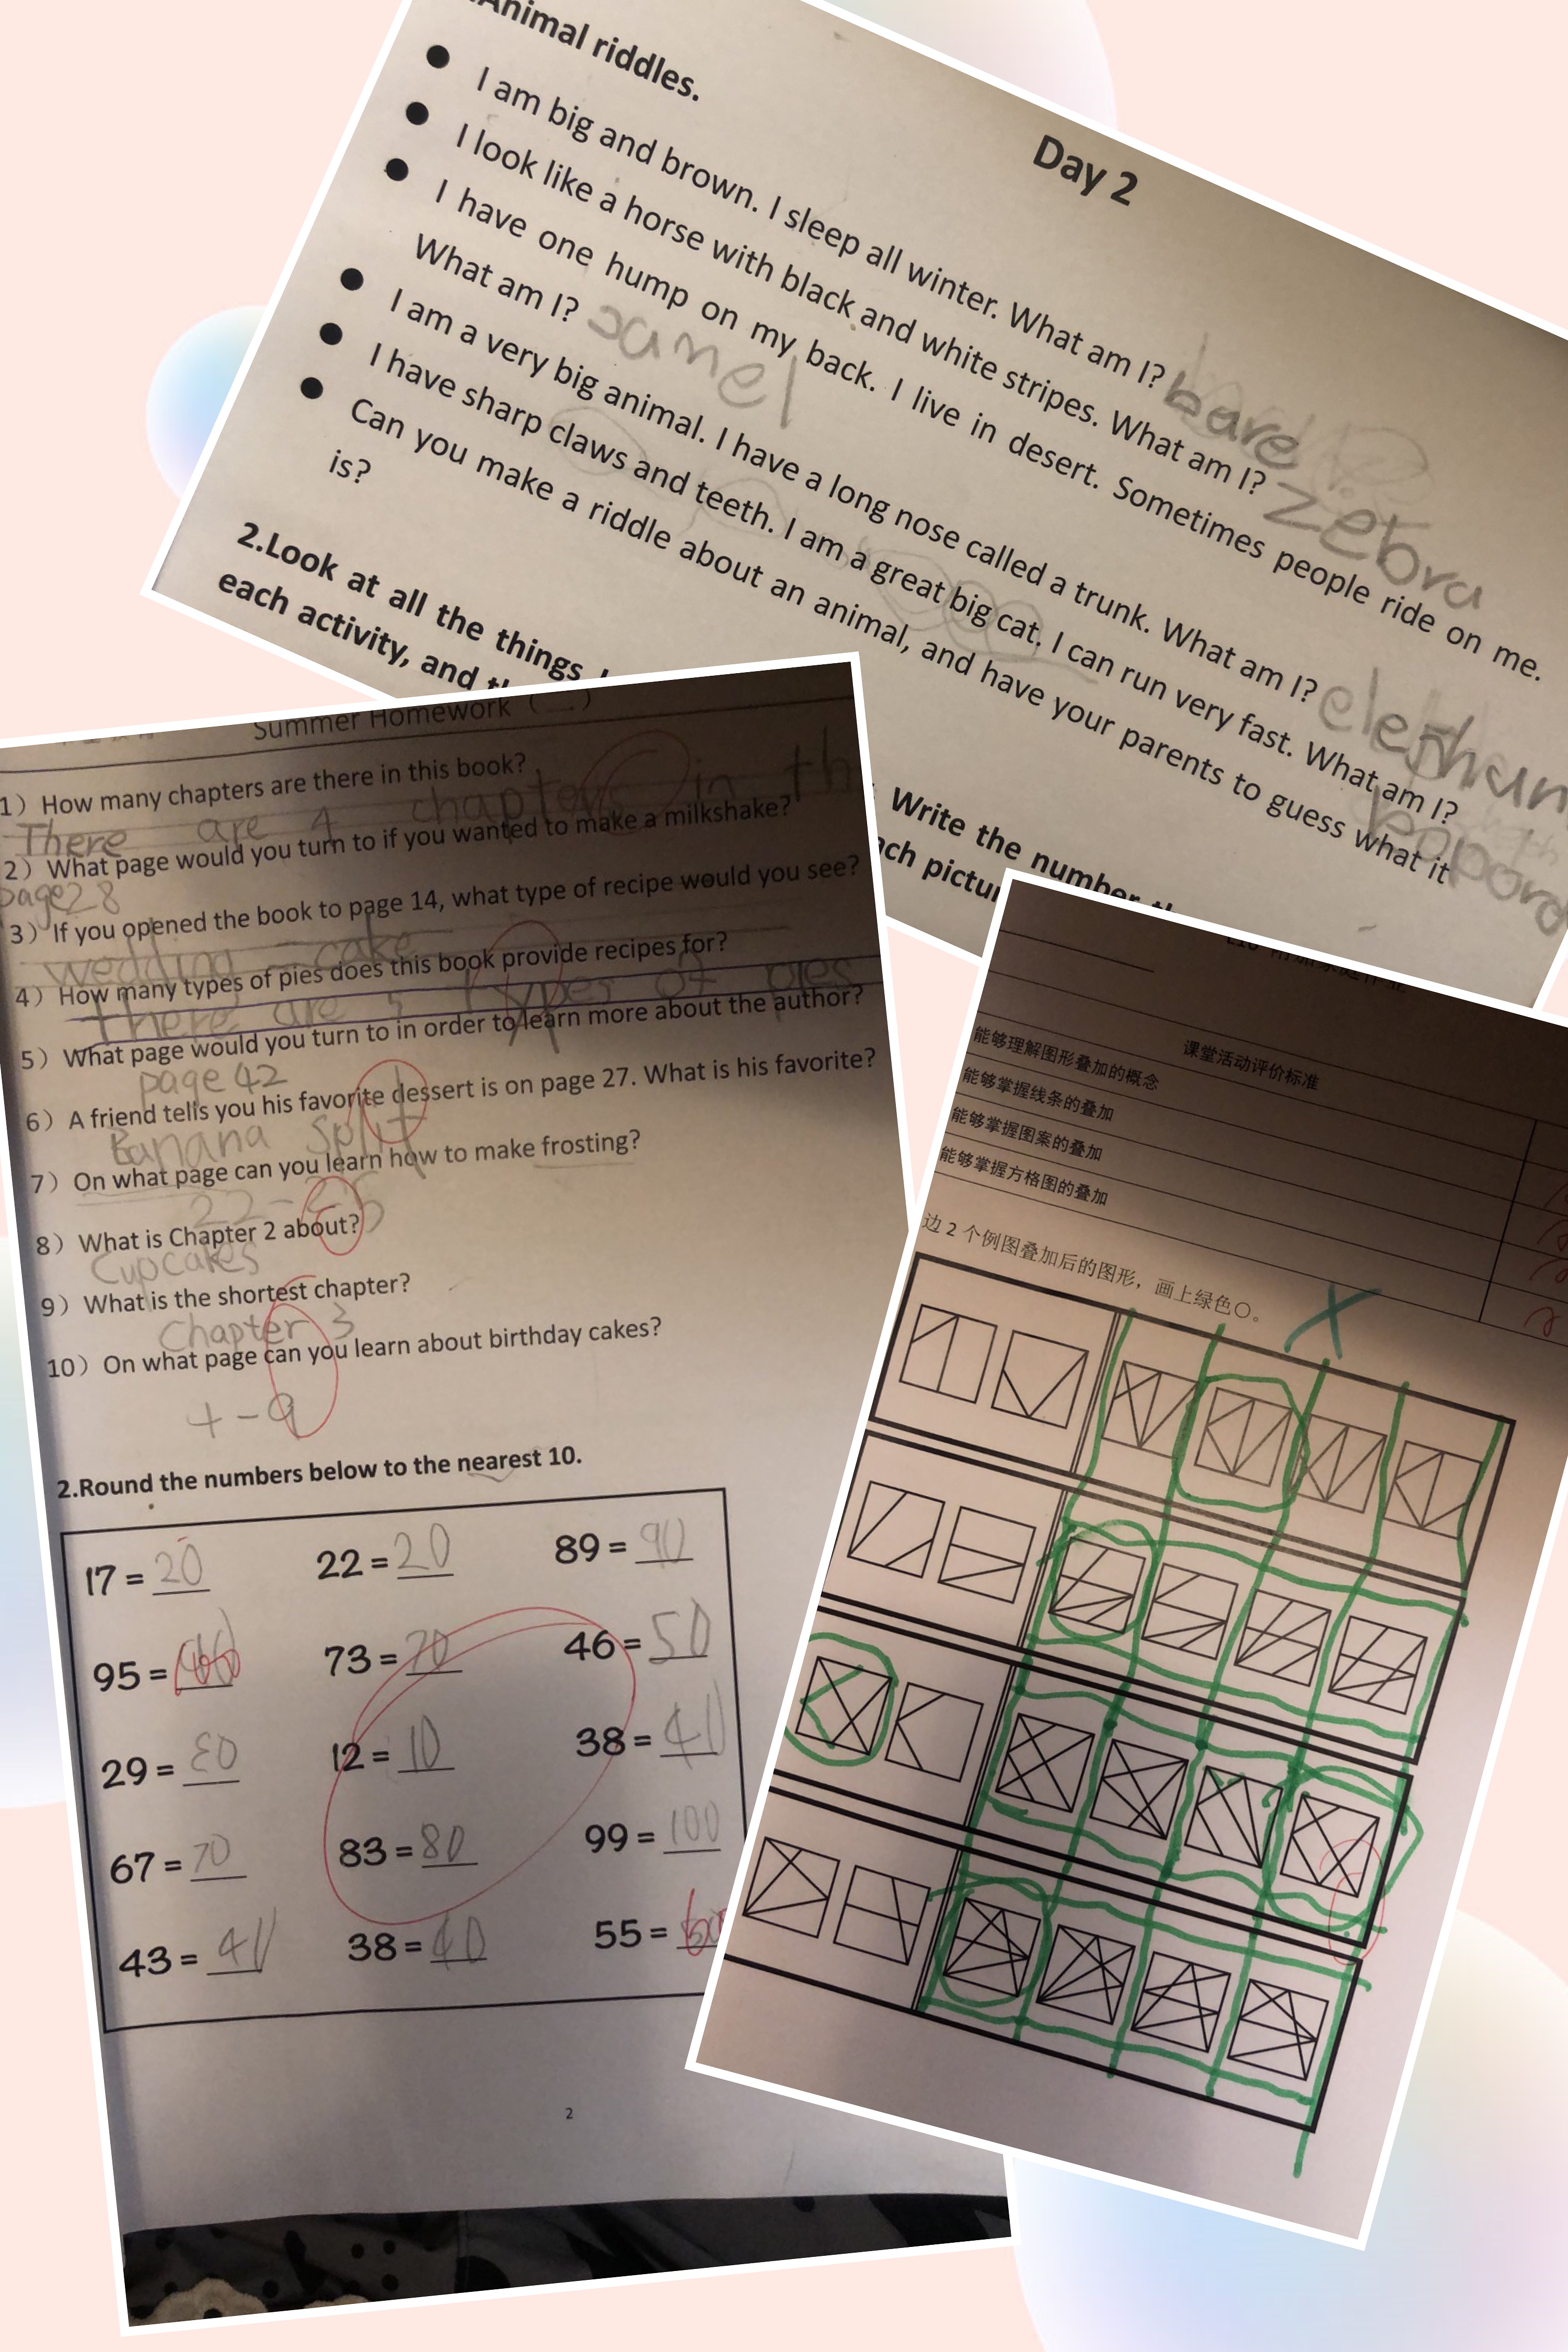 Animal riddles.
Day 2
● I am big and brown. I sleep all winter. What am I? bare
● I look like a horse with black and white stripes. What am I? zebra
● I have one hump on my back. I live in desert. Sometimes people ride on me.
What am I? camel
● I am a very big animal. I have a long nose called a trunk. What am I?
● I have sharp claws and teeth. I am a great big cat. I can run very fast. What am I?
● Can you make a riddle about an animal, and have your parents to guess what it
is?
2.Look at all the things
each activity, and
Write the number
Summer Homework
1）How many chapters are there in this book?
There are 4 chapters in th
2）What page would you turn to if you wanted to make a milkshake?
page28
3）If you opened the book to page 14, what type of recipe would you see?
wedding cake
4）How many types of pies does this book provide recipes for?
There are 5 types of pies
5）What page would you turn to in order to learn more about the author?
page 42
6）A friend tells you his favorite dessert is on page 27. What is his favorite?
Banana Split
7）On what page can you learn how to make frosting?
22-
8）What is Chapter 2 about?
Cupcakes
9）What is the shortest chapter?
Chapter 3
10）On what page can you learn about birthday cakes?
4-9
2.Round the numbers below to the nearest 10.
17 = 20 22 = 20 89 = 90
95 = 73 = 70 46 = 50
29 = 12 = 10 38 =
67 = 70 83 = 80 99 = 100
43 = 38 = 40 55 =
2
课堂活动评价标准
能够理解图形叠加的概念
能够掌握线条的叠加
能够掌握图案的叠加
能够掌握方格图的叠加
边 2 个例图叠加后的图形，画上绿色〇。